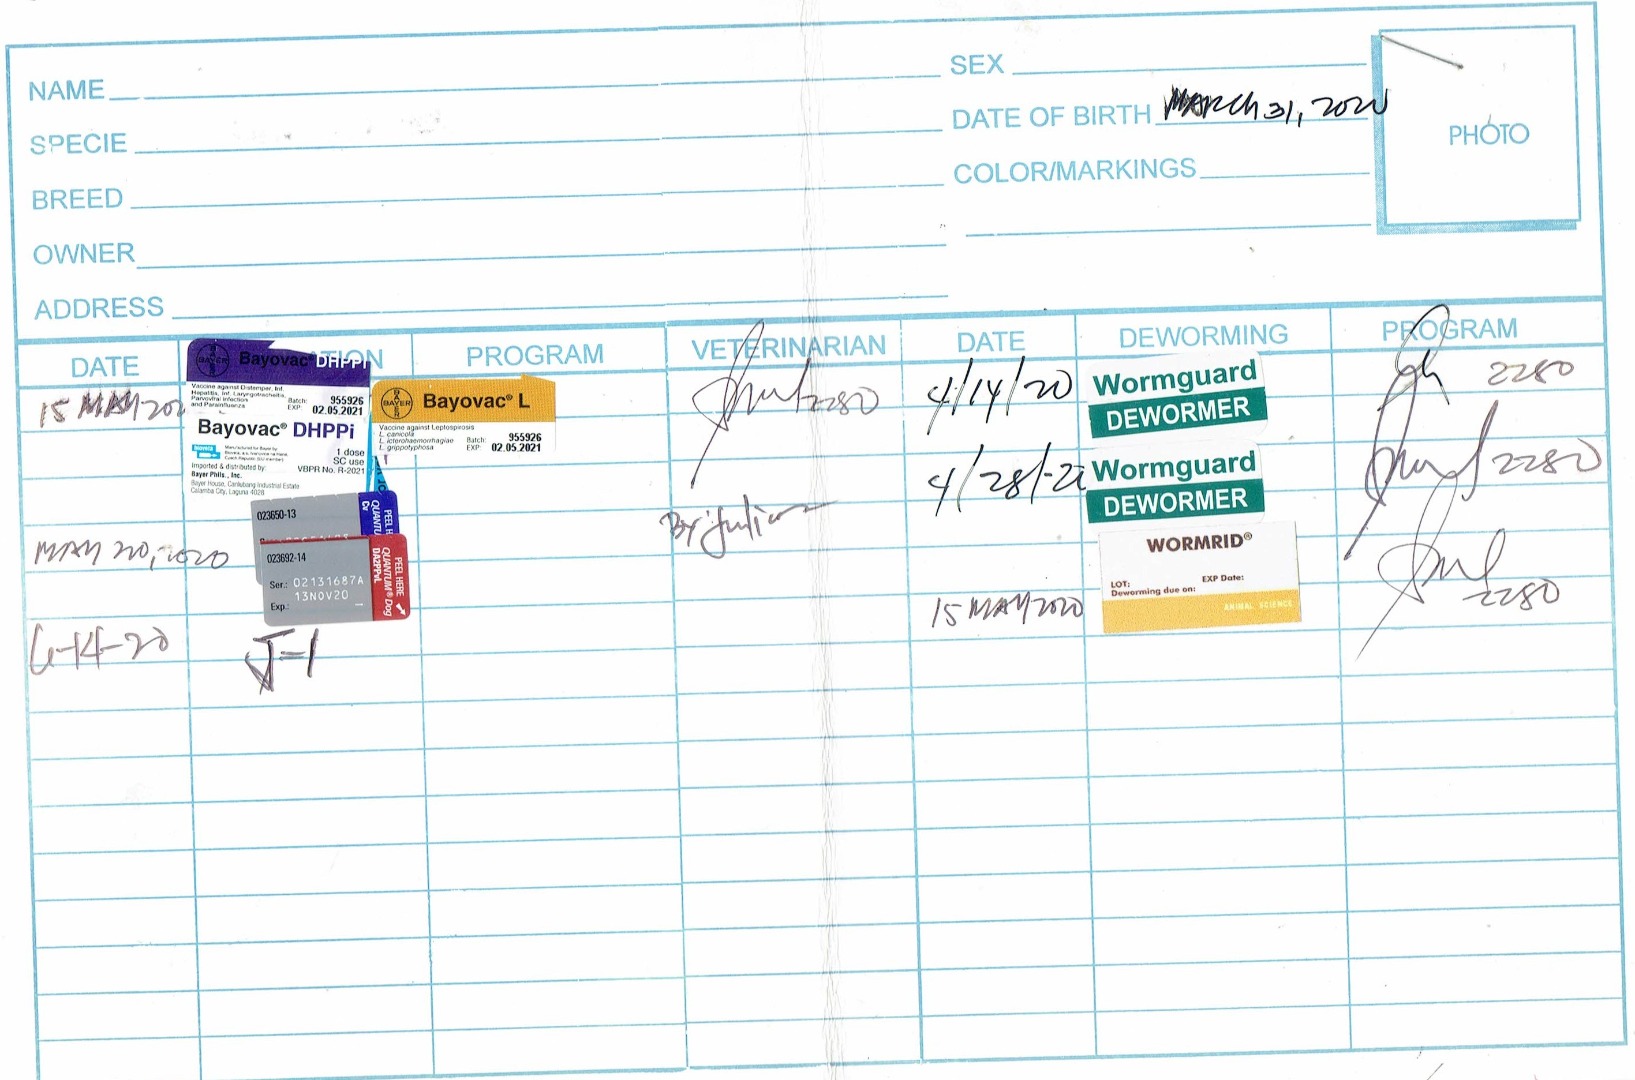 NAME
SEX
DATE OF BIRTH MARCH 31, 2020
PHOTO
SPECIE
COLOR/MARKINGS
BREED
OWNER
ADDRESS
DATE
ION
PROGRAM
VETERINARIAN
DATE
DEWORMING
PROGRAM
15 MAY 202
BAYER
Bayovac® DHPPi
Vaccine against Distemper, Inf.
Hepatitis, Inf. Laryngotracheitis,
Parvoviral infection
and Parainfluenza
Batch: 955926
EXP 02.05.2021
Bayovac® DHPPi
1 dose
SC use
VBPR No. R-2021
Imported & distributed by:
Bayer Phils., Inc.
Bayer House, Canlubang Industrial Estate
Calamba City, Laguna 4028
BAYER
Bayovac® L
Vaccine against Leptospirosis
L. canicola
L. icterohaemorrhagiae
L. grippotyphosa
Batch: 955926
EXP: 02.05.2021
2280
4/14/20
Wormguard
DEWORMER
2280
4/28/-20
Wormguard
DEWORMER
2280
MAY 20, 2020
023650-13
PEEL H
QUANTU
Cv
023692-14
Ser.: 02131687A
13NOV20
Exp.:
PEEL HERE
QUANTUM® Dog
DA2PPvL
15 MAY 2020
WORMRID®
LOT:
EXP Date:
Deworming due on:
ANIMAL SCIENCE
2280
6-14-20